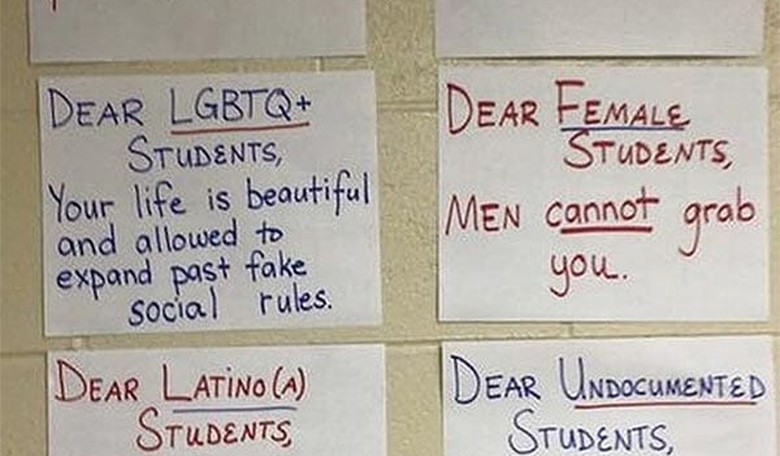 DEAR LGBTQ+
STUDENTS,
Your life is beautiful
and allowed to
expand past fake
social rules.
DEAR FEMALE
STUDENTS,
MEN cannot grab
you.
DEAR LATINO(A)
STUDENTS,
DEAR UNDOCUMENTED
STUDENTS,